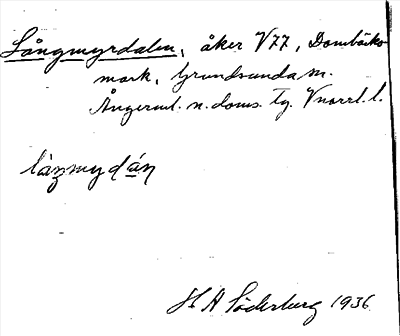 Långmyrdalen, åker V77, Dombäcks
mark, Grundsunda sn.
Ångerml. n. doms. tg. Vnorrl. l.
H A Söderberg 1936